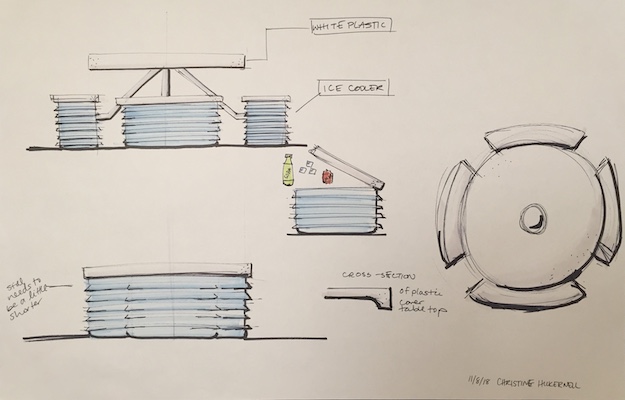 WHITE PLASTIC
ICE COOLER
still
needs to
be a little
shorter
CROSS-SECTION
of plastic
cover
table top
11/8/18 CHRISTINE HICKERNELL